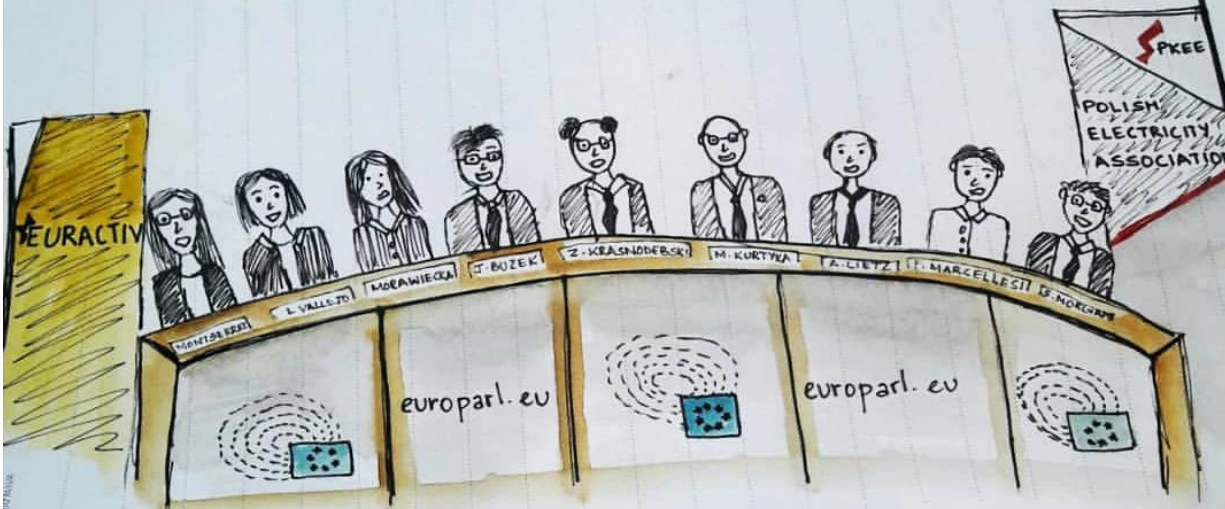 EURACTIV
PKEE
POLISH
ELECTRICITY
ASSOCIATION
MONTSERRAT
L. VALLEJO
MORAWIECKA
J. BUZEK
Z. KRASNODEBSKI
M. KURTYKA
A. LIETZ
F. MARCELLESI
europarl.eu
europarl.eu